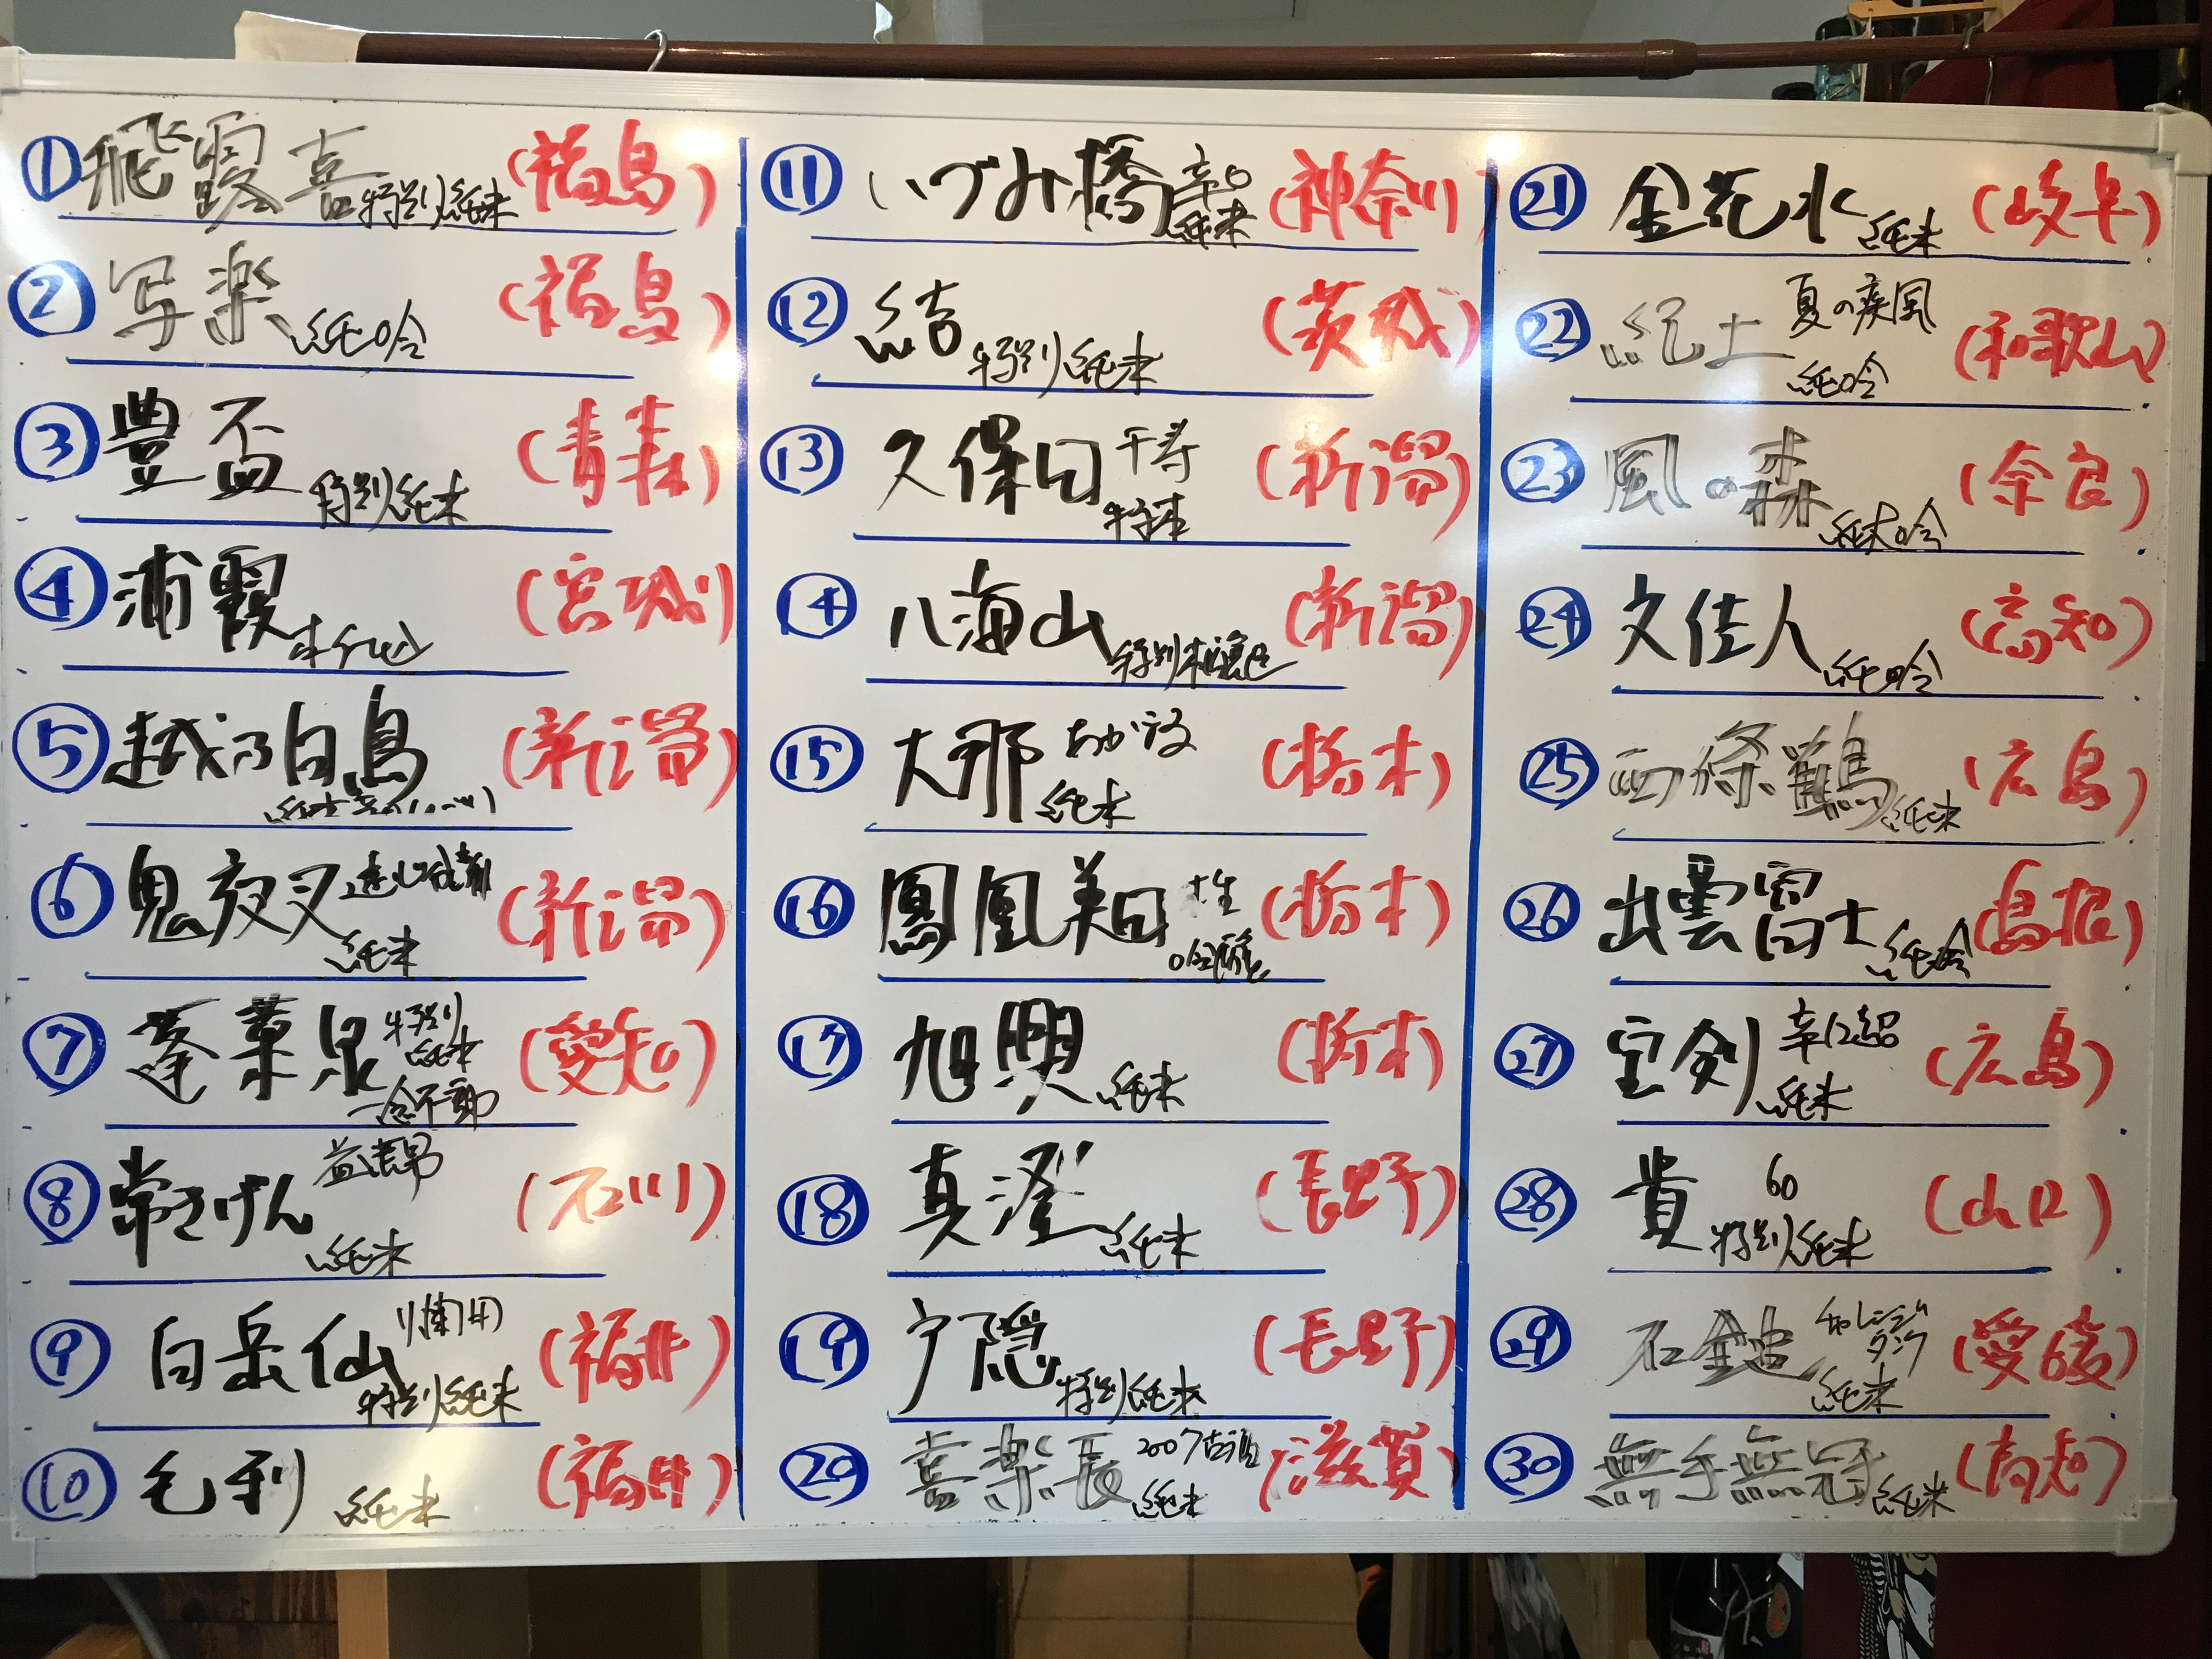 ① 飛露喜 特別純米 (福島)
② 写楽 純吟 (福島)
③ 豊盃 特別純米 (青森)
④ 浦霞 本仕込 (宮城)
⑤ 越乃白鳥 (新潟)
⑥ 鬼夜叉 純米 (新潟)
⑦ 蓬莱泉 特別純米 一念不動 (愛知)
⑧ 常きげん 益荒男 純米 (石川)
⑨ 白岳仙 特別純米 (福井)
⑩ 毛利 純米 (福井)
⑪ いづみ橋 辛口 純米 (神奈川)
⑫ 結 特別純米 (茨城)
⑬ 久保田 千寿 特本 (新潟)
⑭ 八海山 特別本醸造 (新潟)
⑮ 大那 あか渡 純米 (栃木)
⑯ 鳳凰美田 吟醸 (栃木)
⑰ 旭興 純米 (栃木)
⑱ 真澄 純米 (長野)
⑲ 戸隠 特別純米 (長野)
⑳ 喜楽長 2007古酒 純米 (滋賀)
㉑ 金花水 純米 (岐阜)
㉒ 紀土 夏の疾風 純吟 (和歌山)
㉓ 風の森 純米吟 (奈良)
㉔ 文佳人 純吟 (高知)
㉕ 西條鶴 純米 (広島)
㉖ 出雲富士 純吟 (島根)
㉗ 宝剣 辛口超 純米 (広島)
㉘ 貴 60 特別純米 (山口)
㉙ 石鎚 チャレンジタンク 純米 (愛媛)
㉚ 無手無冠 純米 (高知)